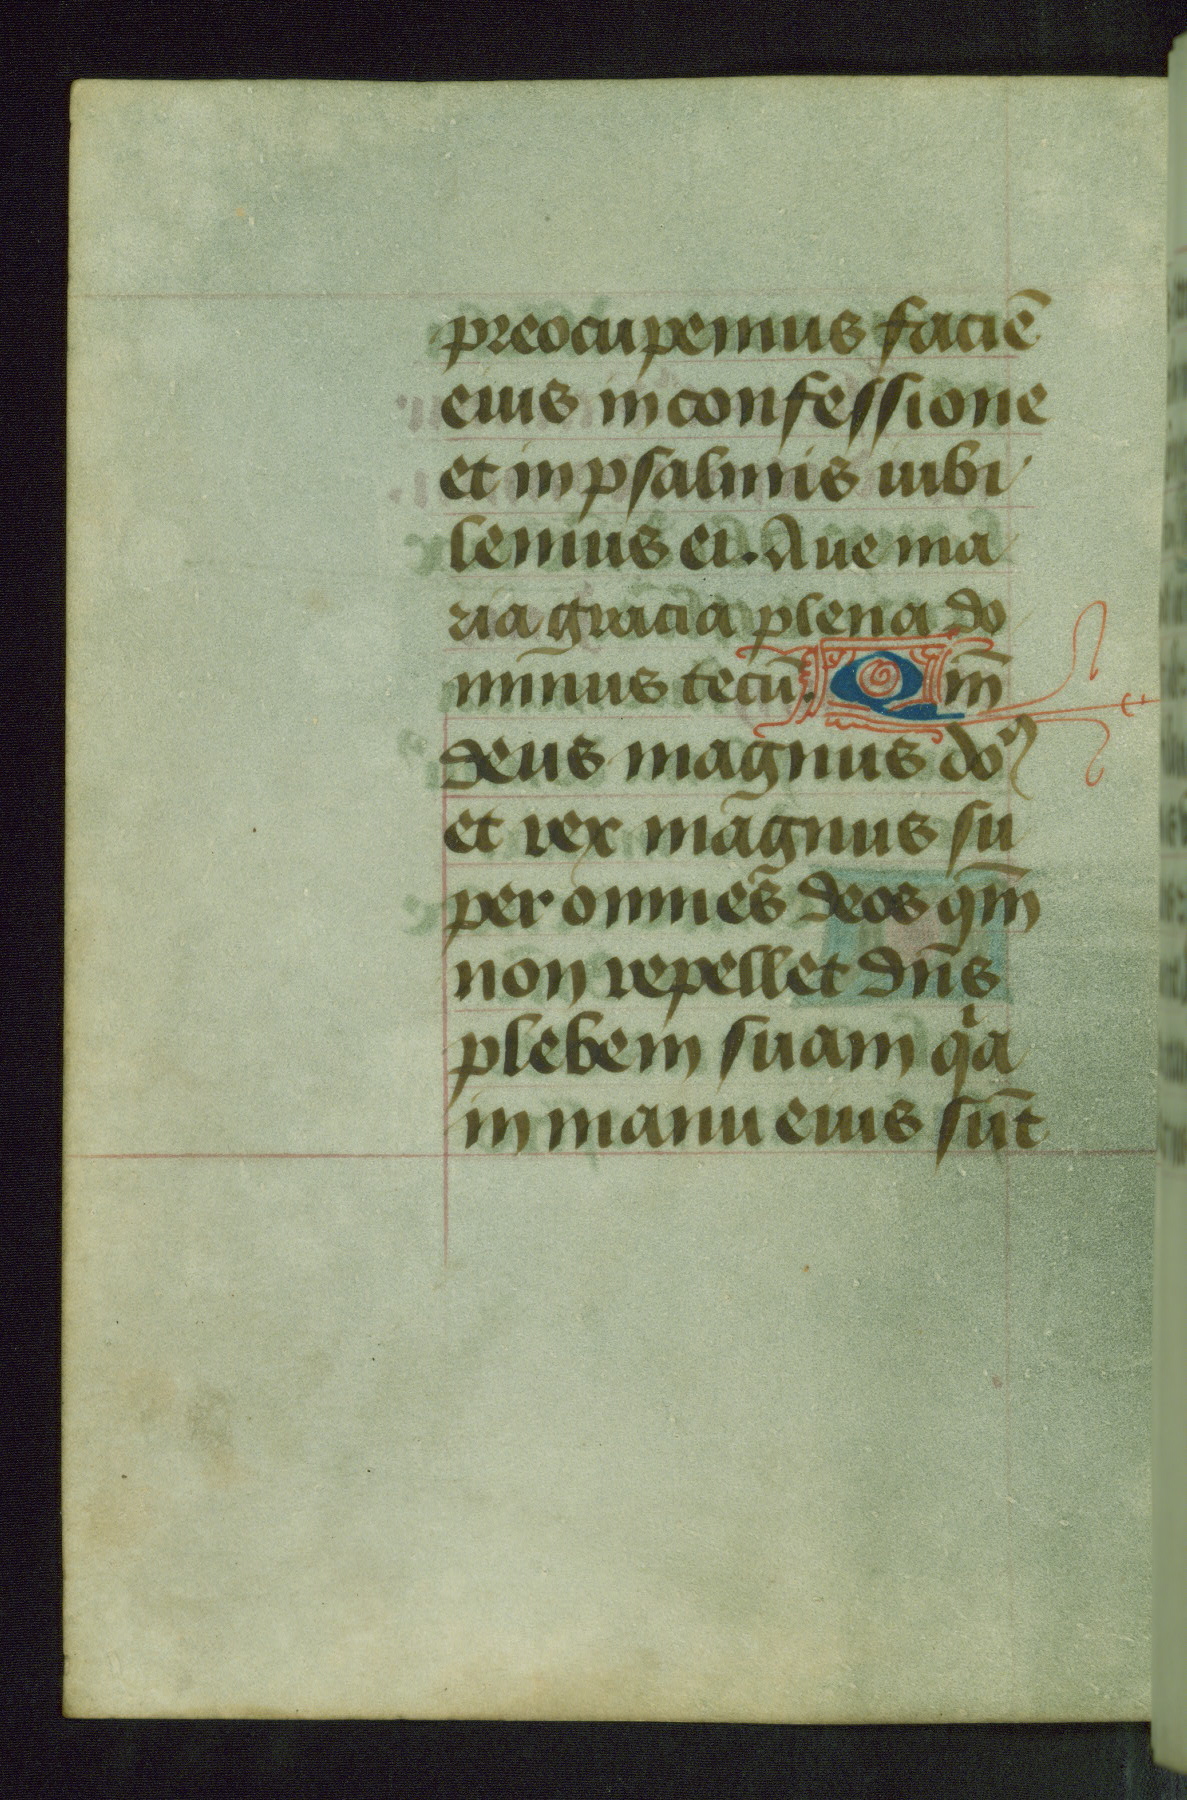 preocupemus faciē
eius in confessione
et in psalmis iubi
lemus ei. Aue ma
ria gracia plena do
minus tecū. Qm̄
deus magnus doꝰ
et rex magnus su
per omnes deos qm̄
non repellet dn̄s
plebem suam qͥa
in manu eius sūt